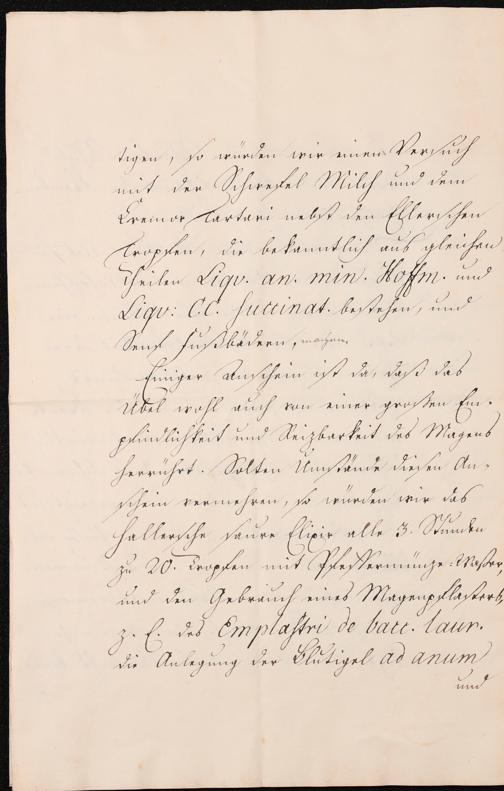 tigen, so würden wir einen Versuch
mit der Schwefel Milch und dem
Cremor Tartari nebst den Ellerschen
Tropfen, die bekanntlich aus gleichen
Theilen Liqv. an. min. Hoffm. und
Liqv: C.C. succinat. bestehen, und
Senf Fußbädern, machen.
Einiger Anschein ist da, daß das
Übel wohl auch von einer großen Em-
pfindlichkeit und Reizbarkeit des Magens
herrührt. Solten Umstände diesen An-
schein vermehren, so würden wir das
Hallersche saure Elixir alle 3. Stunden
zu 20. Tropfen mit Pfeffermünze: Wasser
und den Gebrauch eines Magenpflasters,
z. E. des Emplastri de bacc. laur.
die Anlegung der Blutigel ad anum
und